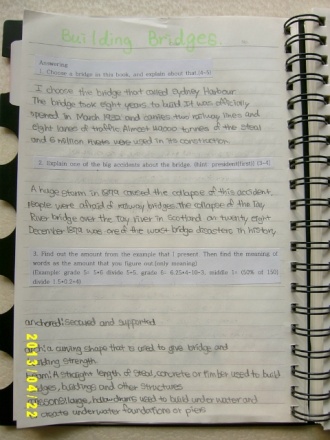 Building Bridges.
Answering
1. Choose a bridge in this book, and explain about that.(4~5)
I choose the bridge that called Sydney Harbour.
The bridge took eight years to build. It was officially
opened in March 1932 and carries two railway lines and
eight lanes of traffic. Almost tonnes of the steel
and 6 million rivets were used in its construction.
2. Explain one of the big accidents about the bridge. (3~4)
A huge storm in 1879 caused the collapse of this accident.
People were afraid of railway bridges. the collapse of the Tay
River bridge over the Tay river in Scotland on twenty eight
December 1879 was one of the worst bridge disasters in history.
3. Find out the amount from the example that I present. Then find the meaning of
words as the amount that you figure out.(only meaning)
(Example: grade 5: 5+0 divide 5=5, grade 6: 6.25×4-10=3, middle 1= (50% of 150)
divide 1.5+0.2=4)
anchored: secured and supported
arch: a curving shape that is used to give bridge and
building strength
Beam: A straight length of steal, concrete or timber used to build
bridges, buildings and other structures
caissons: large, hollow drums used to build under water and
create underwater foundations or piers
2013/04/22